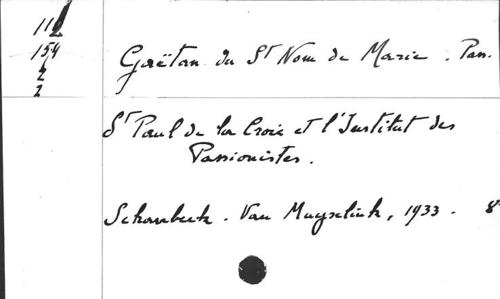 112
154
2
2
Gaëtan du St Nom de Marie. Pas.
St Paul de la Croix et l'Institut des
Passionistes.
Schaarbeek. Van Muyselink, 1933. 8